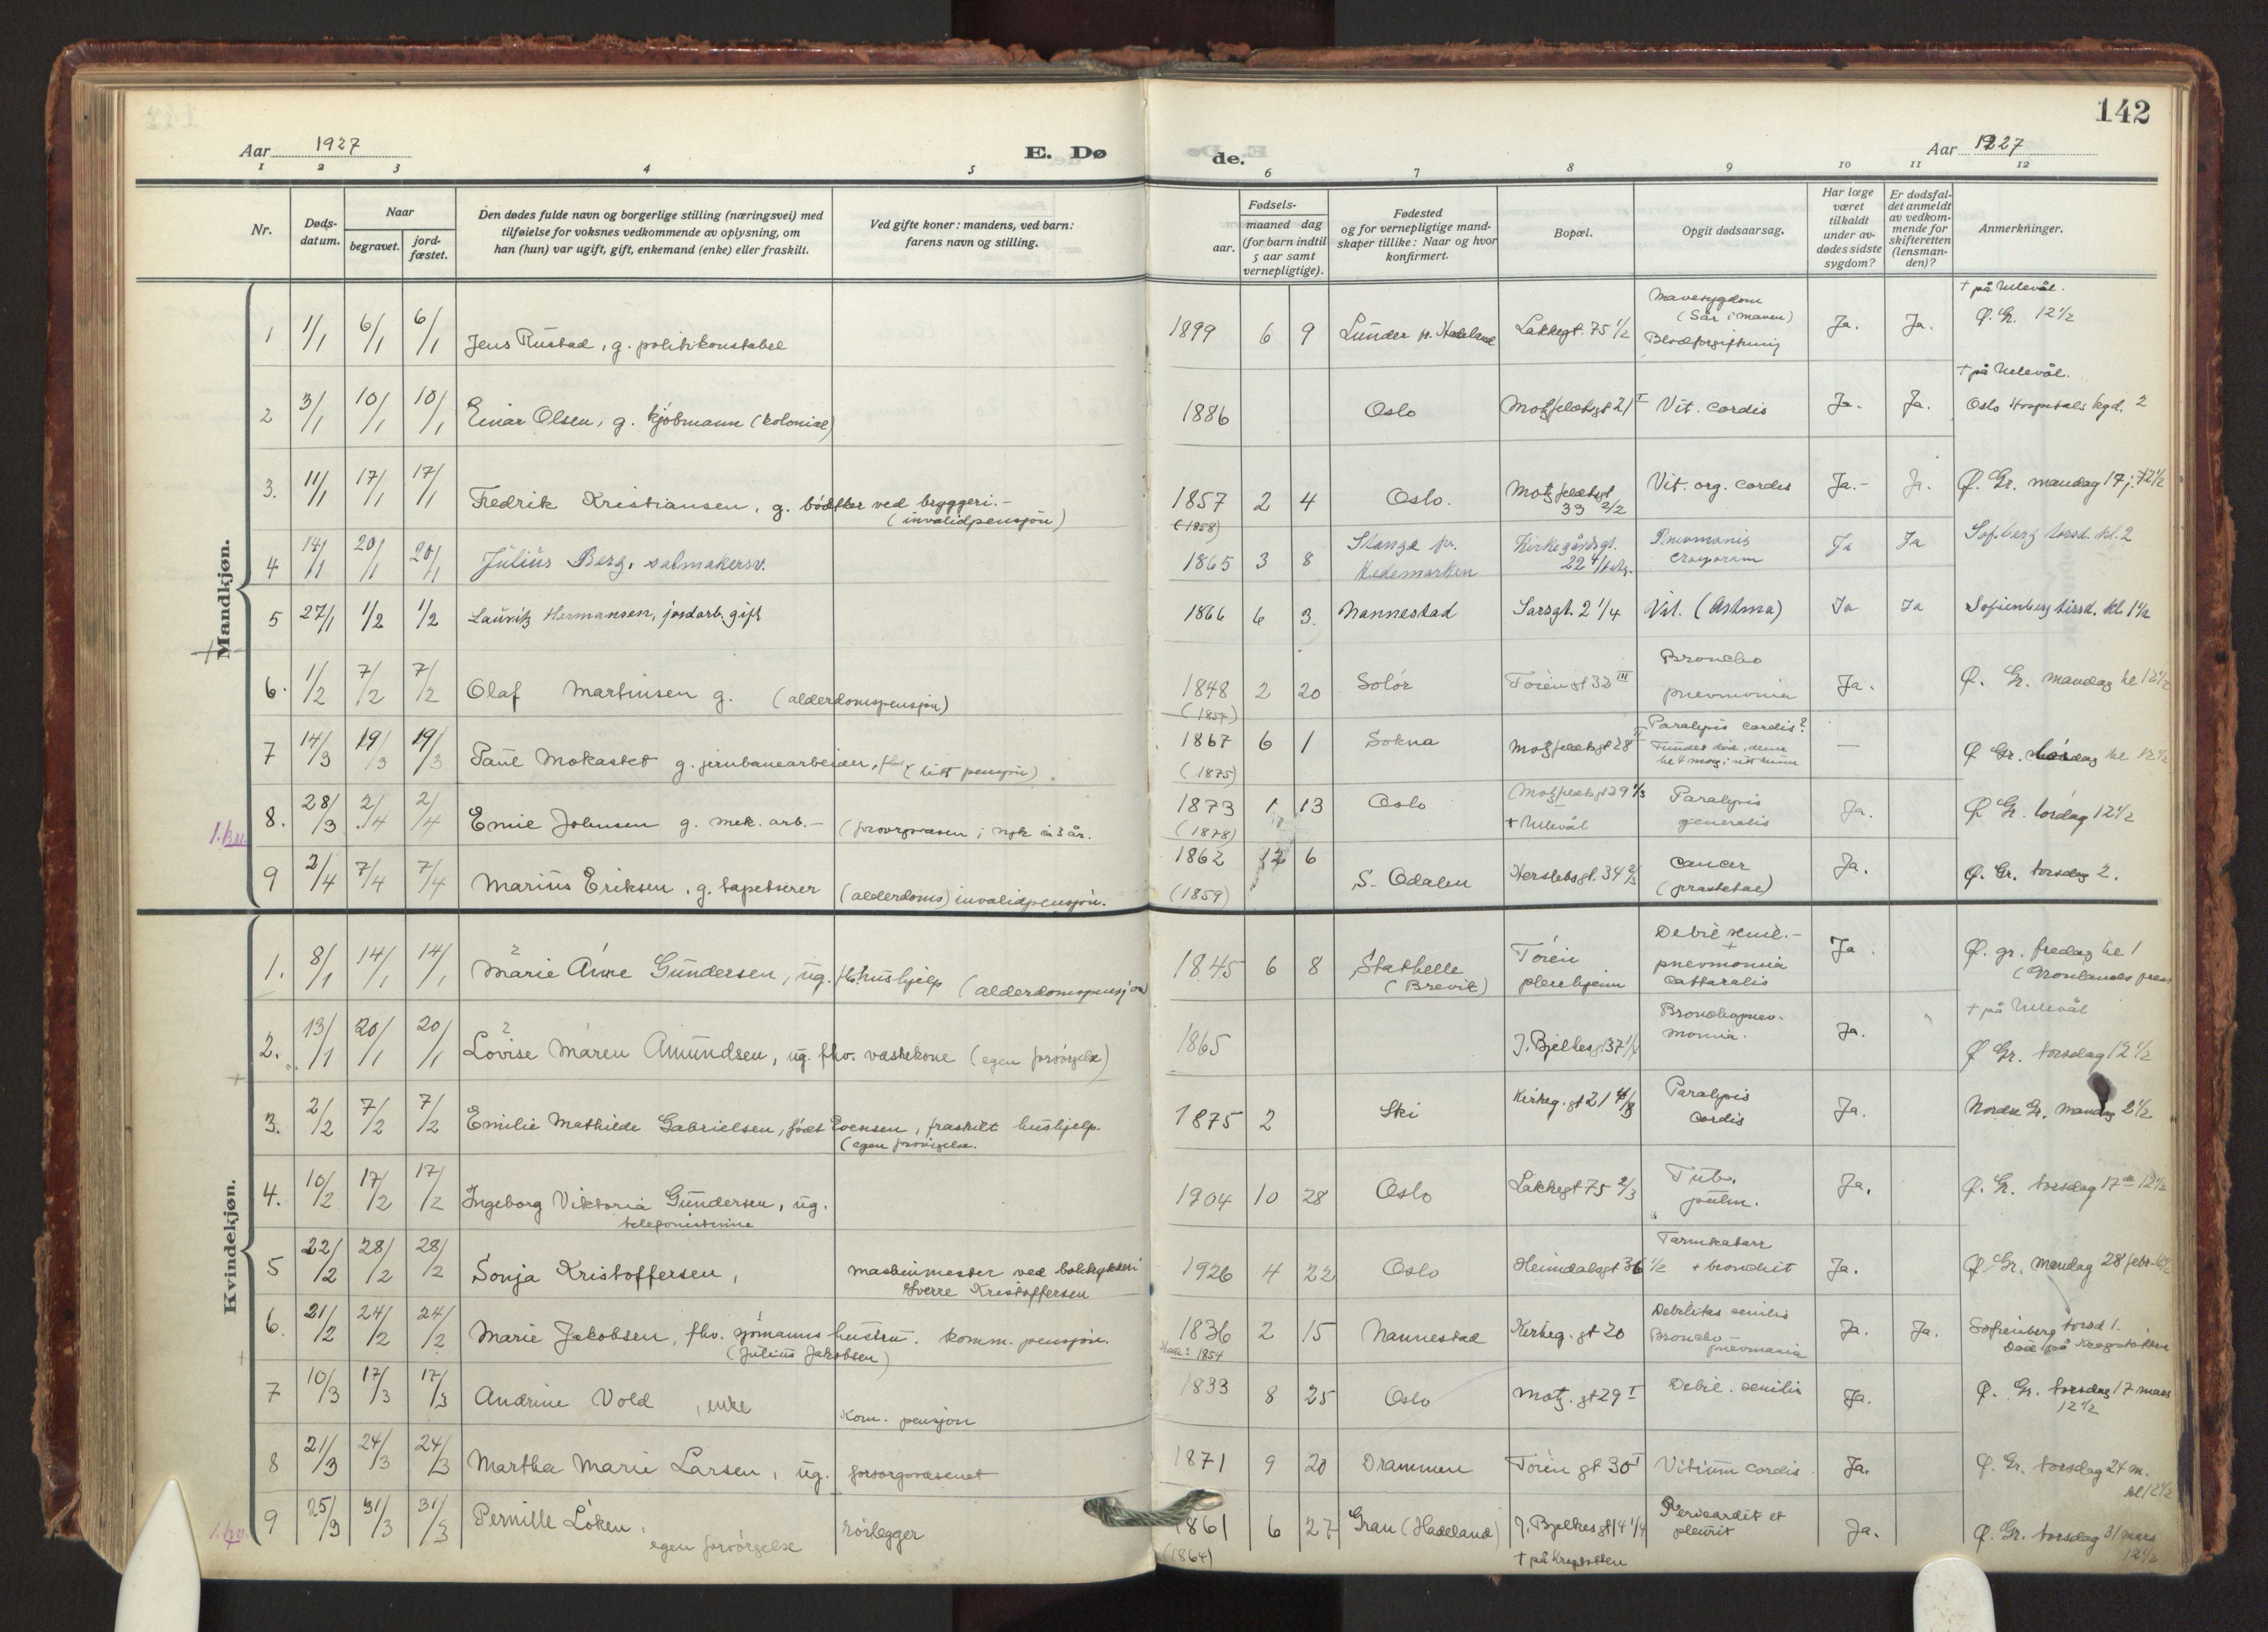 142
Aar 1927
E. Dø
de.
Aar 1927
1 2 3 4 5 6 7 8 9 10 11 12
Nr.
Døds-
datum.
Naar
begravet.
jord-
fæstet.
Den dødes fulde navn og borgerlige stilling (næringsvei) med
tilføielse for voksnes vedkommende av oplysning, om
han (hun) var ugift, gift, enkemand (enke) eller fraskilt.
Ved gifte koner: mandens, ved barn:
farens navn og stilling.
Fødsels-
aar.
maaned dag
(for barn indtil
5 aar samt
vernepligtige).
Fødested
og for vernepligtige mand-
skaper tillike: Naar og hvor
konfirmert.
Bopæl.
Opgit dødsaarsag.
Har læge
været
tilkaldt
under av-
dødes sidste
sygdom?
Er dødsfal-
det anmeldt
av vedkom-
mende for
skifteretten
(lensman-
den)?
Anmerkninger.
Mandkjøn.
† på Ulevål.
1 1/1 6/1 6/1 Jens Rustad, g. politikonstabel 1899 6 9 Lunder p. Hadeland Lakkegt. 75 1/2 Mavesygdom (Sår i maven) Blodforgiftning Ja. Ja. Ø. Gr. 12 1/2
† på Ulevål.
2 3/1 10/1 10/1 Einar Olsen, g. kjøbmann (kolonial) 1886 Oslo Motzfeldtsgt 21 I Vit. cordis Ja. Ja. Oslo Hospitals kgd. 2
3. 11/1 17/1 17/1 Fredrik Kristiansen, g. bødtker ved bryggeri.- (invalidpensjon) 1857 (1858) 2 4 Oslo. Motzfeldtsgt 33 2/2 Vit. org. cordis Ja.- Ja. Ø. Gr. mandag 17 j. 12 1/2
4 14/1 20/1 20/1 Julius Berg, salmakersv. 1865 3 8 Stange pr. Hedemarken Kirkegårdsgt. 22 Pneumonis crouposam Ja Ja Sofberg torsd. kl. 2
5 27/1 1/2 1/2 Lauritz Hermansen, jordarb. gift 1866 6 3. Nannestad Sarsgt. 2 1/4 Vit. (Astma) Ja Ja Sofienberg tirsd. kl. 1 1/2
6. 1/2 7/2 7/2 Olaf Martinsen g. (alderdomspensjon) 1848 (1854) 2 20 Solør Tøiengt 32 III Broncho pneumonia Ja. Ø. Gr. mandag kl 12 1/2
7 14/3 19/3 19/3 Paul Mokastet g. jernbanearbeider, (litt pensjon). 1867 (1875) 6 1 Sokna Motzfeldtsgt 28 II Paralysis cordis? Fundet død, denne — Ø Gr. lørdag kl 12 1/2
8. 28/3 2/4 2/4 Emil Johnsen g. mek. arb.- (forsorgsvæsen i nok et 3 år. 1873 (1878) 1 13 Oslo Motzfeldtsgt 29 1/3 † Ulevål Paralysis generalis Ja. Ø Gr. lørdag 12 1/2
1. kv.
9 2/4 7/4 7/4 Marius Eriksen, g. tapetserer (alderdoms) invalidpensjon. 1862 (1859) 12 6 S. Odalen Herslebsgt. 34 2/3 Cancer (prostatae) Ja. Ø. Gr. torsdag 2.
Kvindekjøn.
1. 8/1 14/1 14/1 Marie Anne Gundersen, ug. fhv. hushjelp (alderdomspensjon) 1845 6 8 Stathelle (Brevik) Tøien pleiehjem Debil senil.- + pneumonia cattaralis Ja. Ø. gr. fredag kl 1 (Grønlands prest
† på Ulevål
2. 13/1 20/1 20/1 Lovise Maren Amundsen, ug. fhv. vaskekone (egen forsørgelse) 1865 J. Bjelkesgt 37 1/4 Bronchopneumonia. Ja. Ø Gr. torsdag 12 1/2
3. 2/2 7/2 7/2 Emilie Mathilde Gabrielsen, født Evensen, fraskilt hushjelp. (egen forsørgelse. 1875 2 Ski Kirkeg. gt 21 4/3 Paralysis cordis Ja. Nordre Gr. mandag 2 1/2
4. 10/2 17/2 17/2 Ingeborg Viktoria Gundersen, ug. telefonistinne 1904 10 28 Oslo Lakkegt 75 2/3 Tub. pulm. Ja. Ø. Gr. torsdag 17de 12 1/2
5 22/2 28/2 28/2 Sonja Kristoffersen, maskinmester ved boktrykkeri Sverre Kristoffersen 1926 4 22 Oslo Heimdalsgt 36 1/2 Tarmkatarr + bronchit Ja. Ø. Gr. mandag 28 febr.
6. 21/2 24/2 24/2 Marie Jakobsen, fhv. sjømanns hustru. (Julius Jakobsen) komm. pensjon. 1836 1854 2 15 Nannestad Kirkeg. gt 20 Debilitas senilis Broncho-pneumonia Ja. Ja. Sofienberg torsd 1. Død på Krogstøtten
7 10/3 17/3 17/3 Andrine Vold, enke kom. pensjon 1833 8 25 Oslo Motz. gt 29 I Debil. senilis Ja. Ø. Gr. torsdag 17 mars 12 1/2
8 21/3 24/3 24/3 Martha Marie Larsen, ug. forsorgsvæsenet 1871 9 20 Drammen Tøien gt 30 I Vitium cordis Ja. Ø. Gr. torsdag 24 m. kl 12 1/2
1. kv.
9 25/3 31/3 31/3 Pernille Løken, egen forsørgelse rørlegger 1861 (1864) 6 27 Gran (Hadeland) J. Bjelkesgt 14 1/4 † på Krogstøtten Pericardit et pleurit Ja. Ø. Gr. torsdag 31 mars 12 1/2